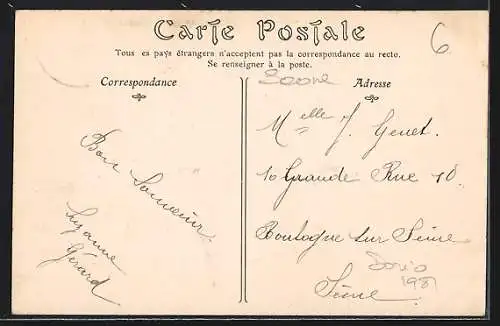 Carte Postale
Tous es pays étrangers n'acceptent pas la correspondance au recto.
Se renseigner à la poste.
6
Correspondance
Adresse
Bon Souvenir
Suzanne
Gérard
Melle J. Genet.
10 Grande Rue 10.
Boulogne sur Seine
Seine